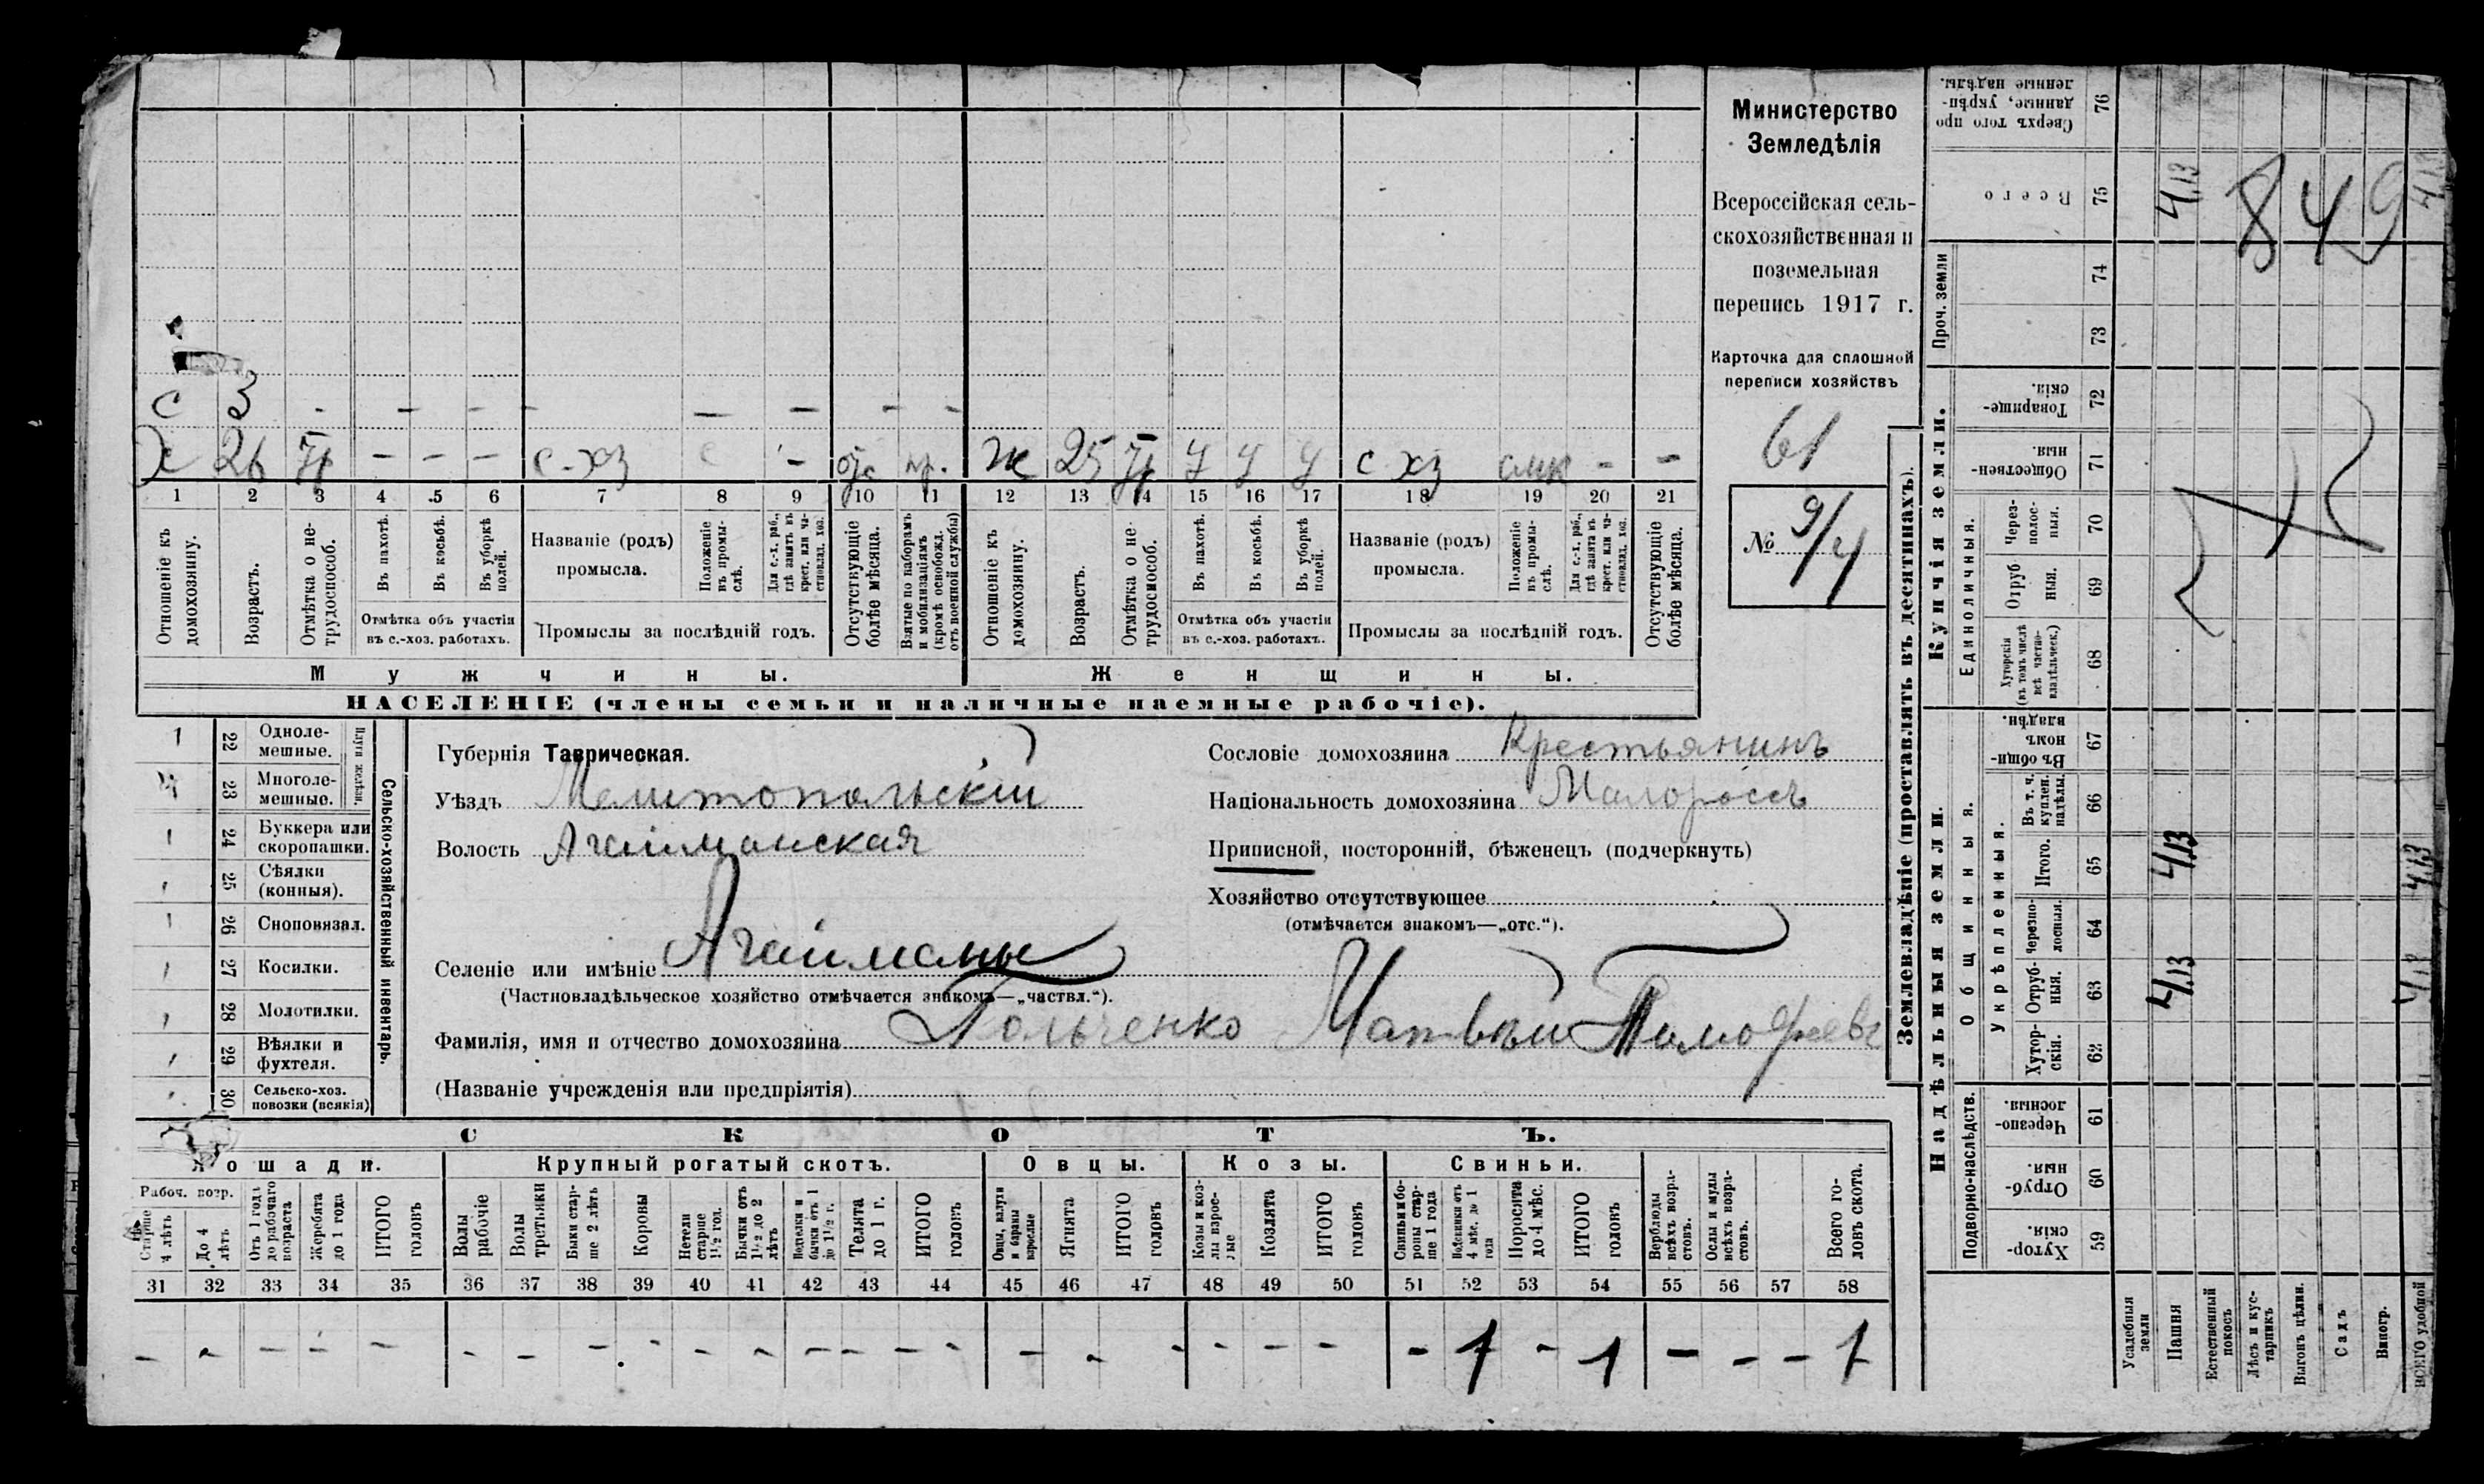 Министерство
Земледѣлія
Всероссійская сель-
скохозяйственная и
поземельная
перепись 1917 г.
Карточка для сплошной
переписи хозяйствъ
61
№ 9/4
С 3 - - - - - - - - -
Х 26 - - - с-хз с - отс
Ж 25 у у у с хз - -
1 2 3 4 5 6 7 8 9 10 11 12 13 14 15 16 17 18 19 20 21
Отношеніе къ домохозяину.
Возрастъ.
Отмѣтка о не-трудоспособ.
Въ пахотѣ.
Въ косьбѣ.
Въ уборкѣ полей.
Отмѣтка объ участіи въ с.-хоз. работахъ.
Названіе (родъ) промысла.
Положеніе въ промы-слѣ.
Для с.-х. раб., гдѣ занятъ въ крест. или ча-стновлад. хоз.
Промыслы за послѣдній годъ.
Отсутствующіе болѣе мѣсяца.
Взятые по наборамъ и мобилизаціямъ (кромѣ освобожд. отъ военной службы)
Отношеніе къ домохозяину.
Возрастъ.
Отмѣтка о не-трудоспособ.
Въ пахотѣ.
Въ косьбѣ.
Въ уборкѣ полей.
Отмѣтка объ участіи въ с.-хоз. работахъ.
Названіе (родъ) промысла.
Положеніе въ промы-слѣ.
Для с.-х. раб., гдѣ занята въ крест. или ча-стновлад. хоз.
Промыслы за послѣдній годъ.
Отсутствующіе болѣе мѣсяца.
Мужчины.
Женщины.
НАСЕЛЕНІЕ (члены семьи и наличные наемные рабочіе).
22 Одноле-мешные.
23 Многоле-мешные.
Плуги желѣзн.
24 Буккера или скоропашки.
25 Сѣялки (конныя).
26 Сноповязал.
27 Косилки.
28 Молотилки.
29 Вѣялки и фухтеля.
30 Сельско-хоз. повозки (всякія)
Сельско-хозяйственный инвентарь.
Губернія Таврическая.
Уѣздъ Мелитопольскій
Волость Агайманская
Селеніе или имѣніе Агайманы
(Частновладѣльческое хозяйство отмѣчается знакомъ—„частвл.“).
Фамилія, имя и отчество домохозяина Гольченко Матвѣй Тимофеевъ
(Названіе учрежденія или предпріятія)
Сословіе домохозяина Крестьянинъ
Національность домохозяина Малороссъ
Приписной, посторонній, бѣженецъ (подчеркнуть)
Хозяйство отсутствующее
(отмѣчается знакомъ—„отс.“).
СКОТЪ.
Лошади.
Крупный рогатый скотъ.
Овцы.
Козы.
Свиньи.
Рабоч. возр.
Старше 4 лѣтъ
До 4 лѣтъ
Отъ 1 года до рабочаго возраста
Жеребята до 1 года
ИТОГО головъ
Волы рабочіе
Волы третьяки
Быки стар-ше 2 лѣтъ
Коровы
Нетели старше 1½ год.
Бычки отъ 1½ до 2 лѣтъ
Подтелки и бычки отъ 1 до 1½ г.
Телята до 1 г.
ИТОГО головъ
Овцы, валухи и бараны взрослые
Ягнята
ИТОГО головъ
Козы и коз-лы взрос-лые
Козлята
ИТОГО головъ
Свиньи и бо-ровы стар-ше 1 года
Подсвинки отъ 4 мѣс. до 1 года
Поросята до 4 мѣс.
ИТОГО головъ
Верблюды всѣхъ возра-стовъ.
Ослы и мулы всѣхъ возра-стовъ.
Всего го-ловъ скота.
31 32 33 34 35 36 37 38 39 40 41 42 43 44 45 46 47 48 49 50 51 52 53 54 55 56 57 58
- - - - - - - - - - - - - - - - - - - - - 1 - 1 - - - 1
Землевладѣніе (проставлять въ десятинахъ).
Надѣльныя земли.
Купчія земли.
Проч. земли
Подворно-наслѣдств.
Общинныя.
Укрѣпленныя.
Единоличныя.
Сверхъ того про
данные, укрѣп-
ленные надѣлы.
76
Всего 75
74
73
Товарище-скія. 72
Обществен-ныя. 71
Через-полос-ныя. 70
Отруб-ныя. 69
Хуторскія (въ томъ числѣ всѣ частно-владѣльческ.) 68
Въ общин-номъ владѣн. 67
Въ т. ч. куплен. надѣлы. 66
Итого. 65
Черезпо-лосныя. 64
Отруб-ныя. 63
Хутор-скія. 62
Черезпо-лосныя. 61
Отруб-ныя. 60
Хутор-скія. 59
Усадебныя земли
Пашня
Естественный покосъ
Лѣсъ и кус-тарникъ
Выгонъ цѣлин.
Садъ
Виногр.
ВСЕГО удобной
4,13
4,13
4,13
4,13
4,13
4,13
849